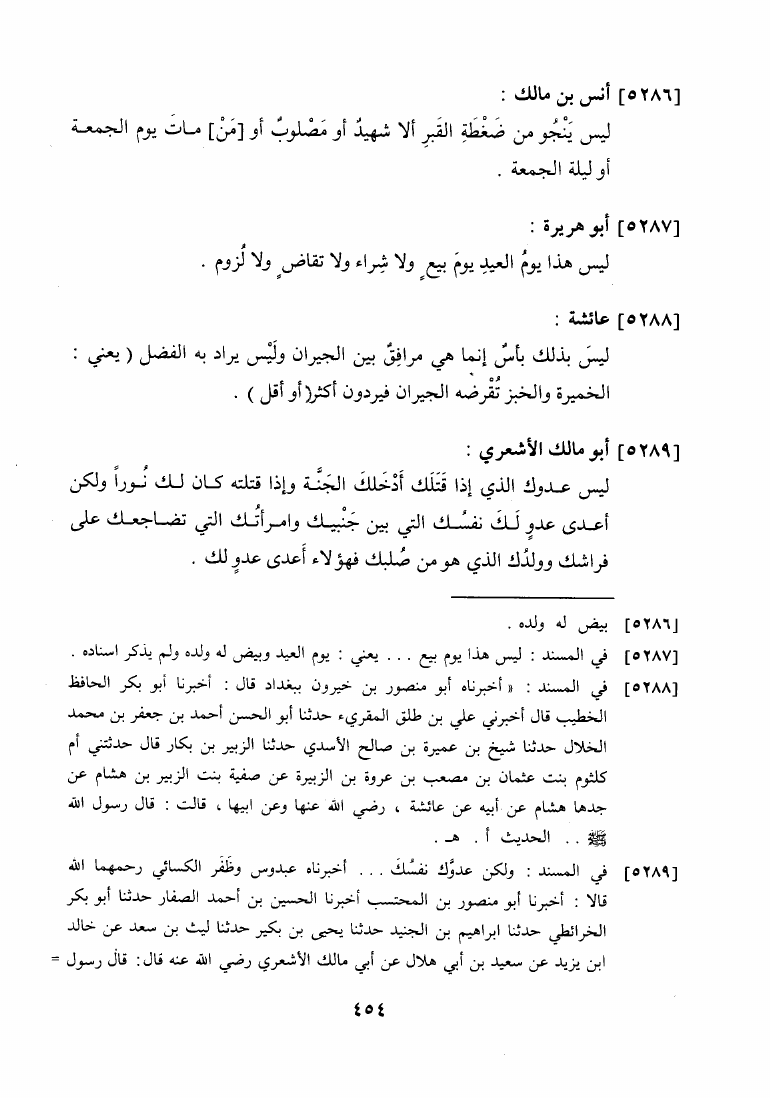 [٥٢٨٦] أنس بن مالك :
ليس يَنْجُو من ضَغْطَةِ القَبرِ ألا شهيدٌ أو مَصْلوبٌ أو [مَنْ] مـاتَ يوم الجمعـة
أو ليلة الجمعة .
[٥٢٨٧] أبو هريرة :
ليس هذا يومُ العيدِ يومَ بيعٍ ولا شِراء ولا تقاضٍ ولا لُزوم .
[٥٢٨٨] عائشة :
ليسَ بذلك بأسٌ إنما هي مرافِقٌ بين الجيران ولَيْس يراد به الفضل ( يعني :
الخميرة والخبز تُقْرضُه الجيران فيردون أكثر(أو أقل ) .
[٥٢٨٩] أبو مالك الأشعري :
ليس عـدوك الذي إذا قَتَلَك أَدْخَلكَ الجَنَّـة وإذا قتلته كـان لـك نُـوراً ولكن
أعـدى عدوٍ لَـكَ نفسُـك التي بين جَنْبيـك وامـرأتُـك التي تضـاجعـك على
فراشك وولدُك الذي هو من صُلبك فهؤلاء أَعدى عدوٍ لك .
[٥٢٨٦] بيض له ولده .
[٥٢٨٧] في المسند : ليس هذا يوم بيع ... يعني : يوم العيد وبيض له ولده ولم يذكر اسناده .
[٥٢٨٨] في المسند : « أخبرناه أبو منصور بن خيرون ببغداد قال : أخبرنا أبو بكر الحافظ
الخطيب قال أخبرني علي بن طلق المقريء حدثنا أبو الحسن أحمد بن جعفر بن محمد
الخلال حدثنا شيخ بن عميرة بن صالح الأسدي حدثنا الزبير بن بكار قال حدثتني أم
كلثوم بنت عثمان بن مصعب بن عروة بن الزبيرة عن صفية بنت الزبير بن هشام عن
جدها هشام عن أبيه عن عائشة ، رضي الله عنها وعن ابيها ، قالت : قال رسول الله
ﷺ .. الحديث أ . هـ .
[٥٢٨٩] في المسند : ولكن عدوَّك نفسُكَ ... أخبرناه عبدوس وظَفَر الكسائي رحمهما الله
قالا : أخبرنا أبو منصور بن المحتسب أخبرنا الحسين بن أحمد الصفار حدثنا أبو بكر
الخرائطي حدثنا ابراهيم بن الجنيد حدثنا يحيى بن بكير حدثنا ليث بن سعد عن خالد
ابن يزيد عن سعيد بن أبي هلال عن أبي مالك الأشعري رضي الله عنه قال: قال رسول =
٤٥٤